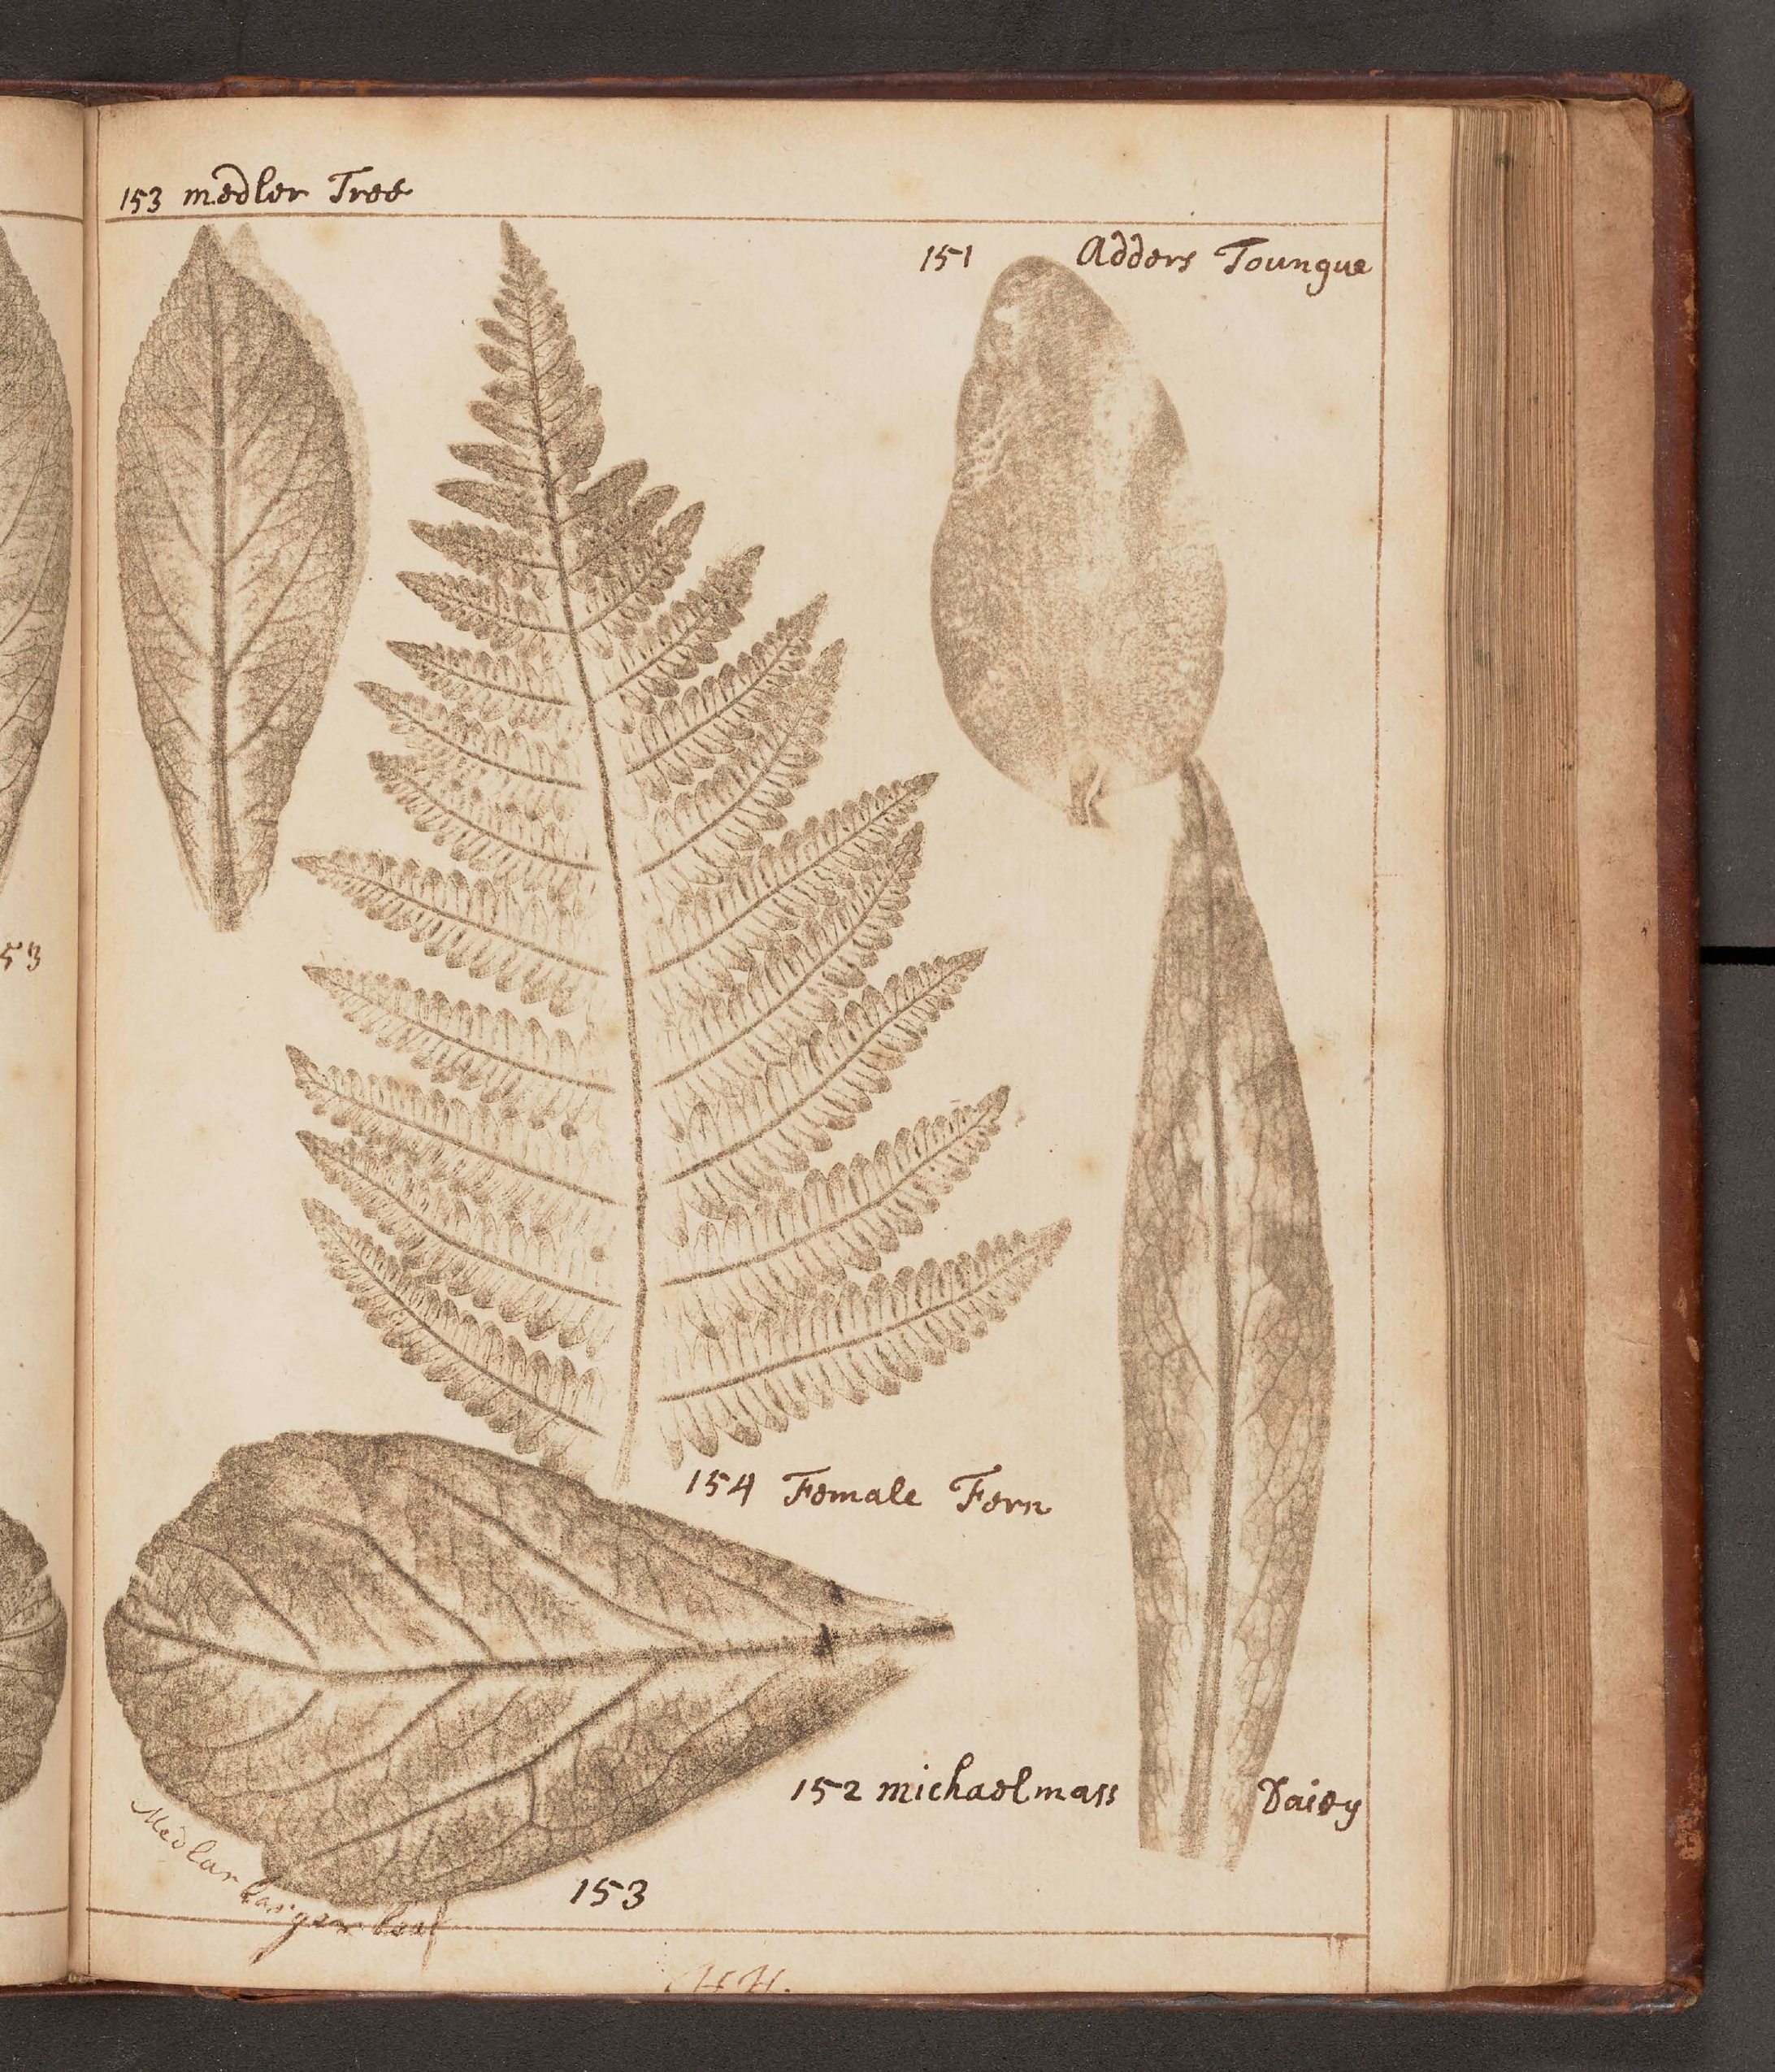 153 medler Tree
151 Adders Toungue
53
154 Female Fern
152 michaelmass Daisy
Medlar larger leaf
153
HH.